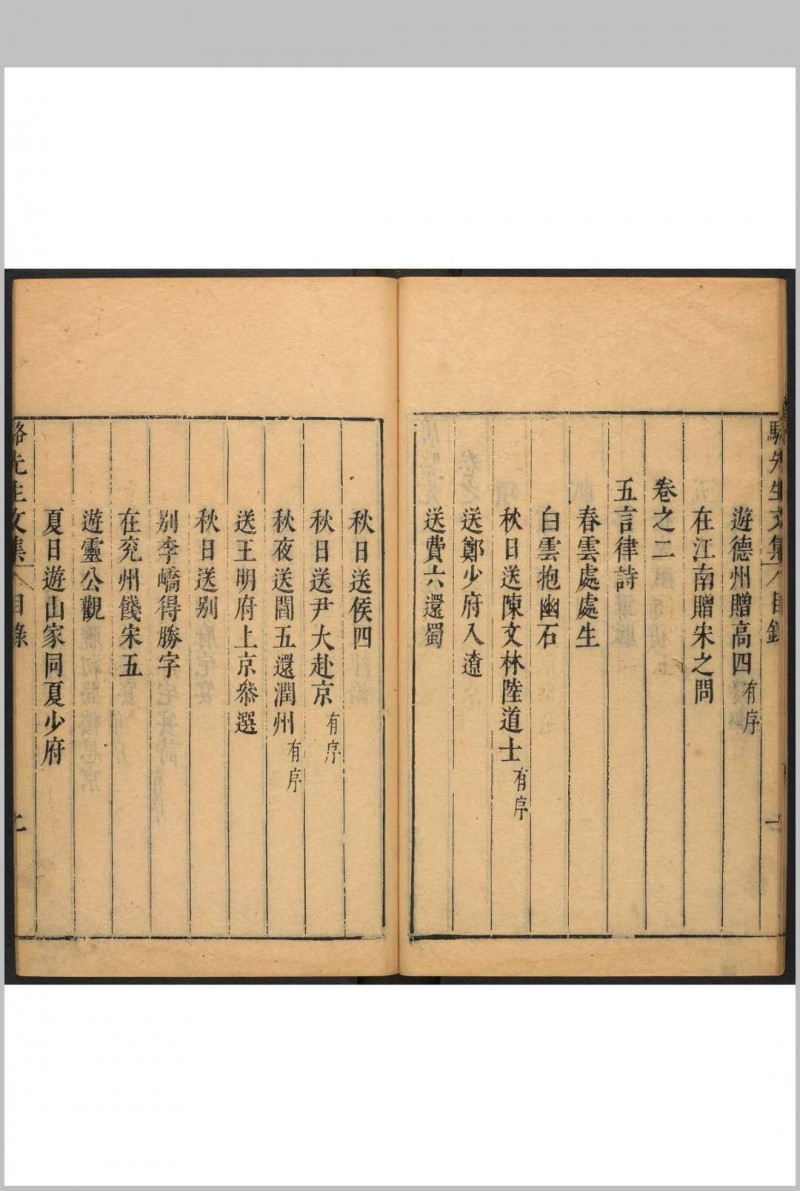 駱先生文集 目錄 一
遊德州贈高四有序
在江南贈宋之問
卷之二
五言律詩
春雲處處生
白雲抱幽石
秋日送陳文林陸道士有序
送鄭少府入遼
送費六還蜀
秋日送侯四
秋日送尹大赴京有序
秋夜送閻五還潤州有序
送王明府上京叅選
秋日送别
别李嶠得勝字
在兖州餞宋五
遊靈公觀
夏日遊山家同夏少府
駱先生文集 目錄 二